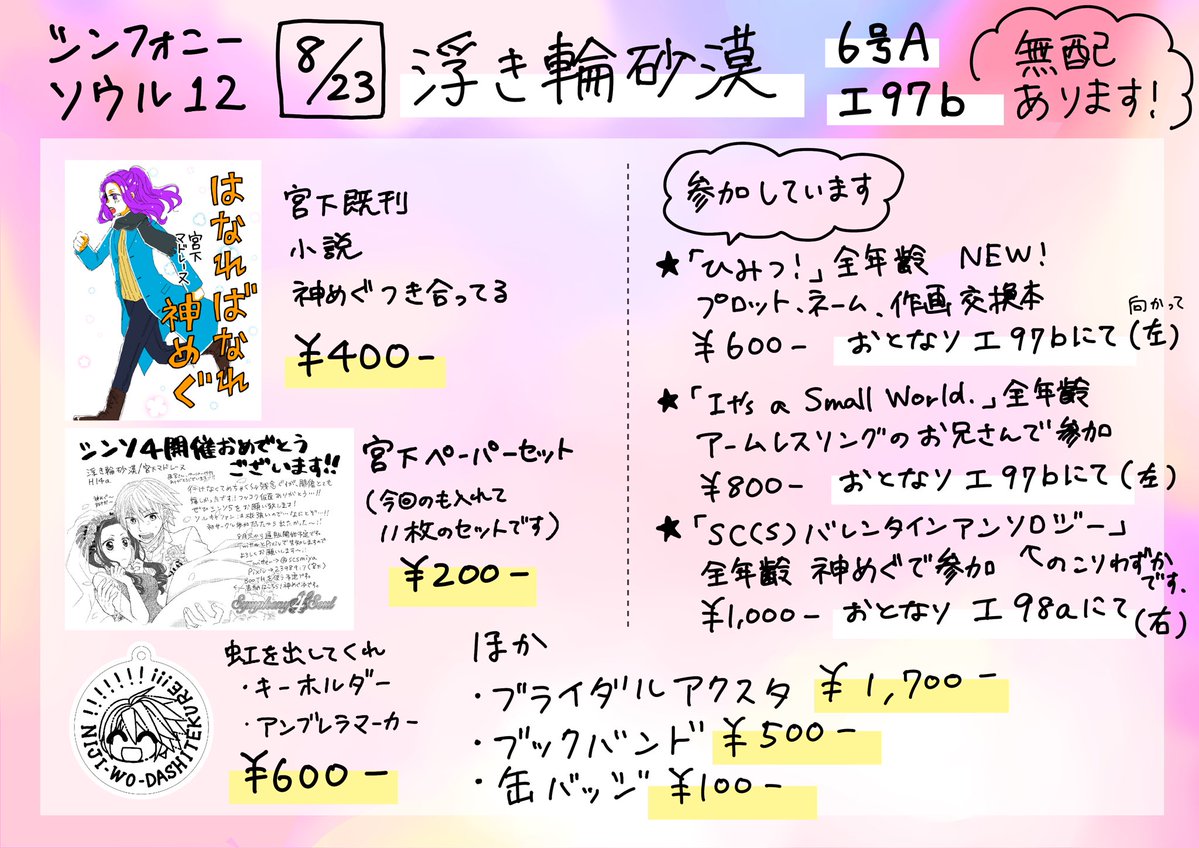 シンフォニー
ソウル12
8/23
浮き輪砂漠
6号A
エ97b
無配
あります!
はなればなれ
神めぐ
宮下
マドレーヌ
宮下既刊
小説
神めぐつき合ってる
¥400-
シンソ4開催おめでとう
ございます!!
浮き輪砂漠/宮下マドレーヌ
H14a
Symphony Soul
宮下ペーパーセット
(今回のも入れて
11枚のセットです)
¥200-
NIJI-WO-DASHITEKURE!!!!!!!!!!
虹を出してくれ
・キーホルダー
・アンブレラマーカー
¥600-
ほか
・ブライダルアクスタ ¥1,700-
・ブックバンド ¥500-
・缶バッジ ¥100-
参加しています
★「ひみつ!」全年齢 NEW!
プロット、ネーム、作画交換本
¥600- おとなソ エ97bにて(左)
向かって
★「It's a Small World.」全年齢
アームレスソングのお兄さんで参加
¥800- おとなソ エ97bにて(左)
★「SC(S)バレンタインアンソロジー」
全年齢 神めぐで参加
のこりわずか
です.
¥1,000- おとなソ エ98aにて(右)